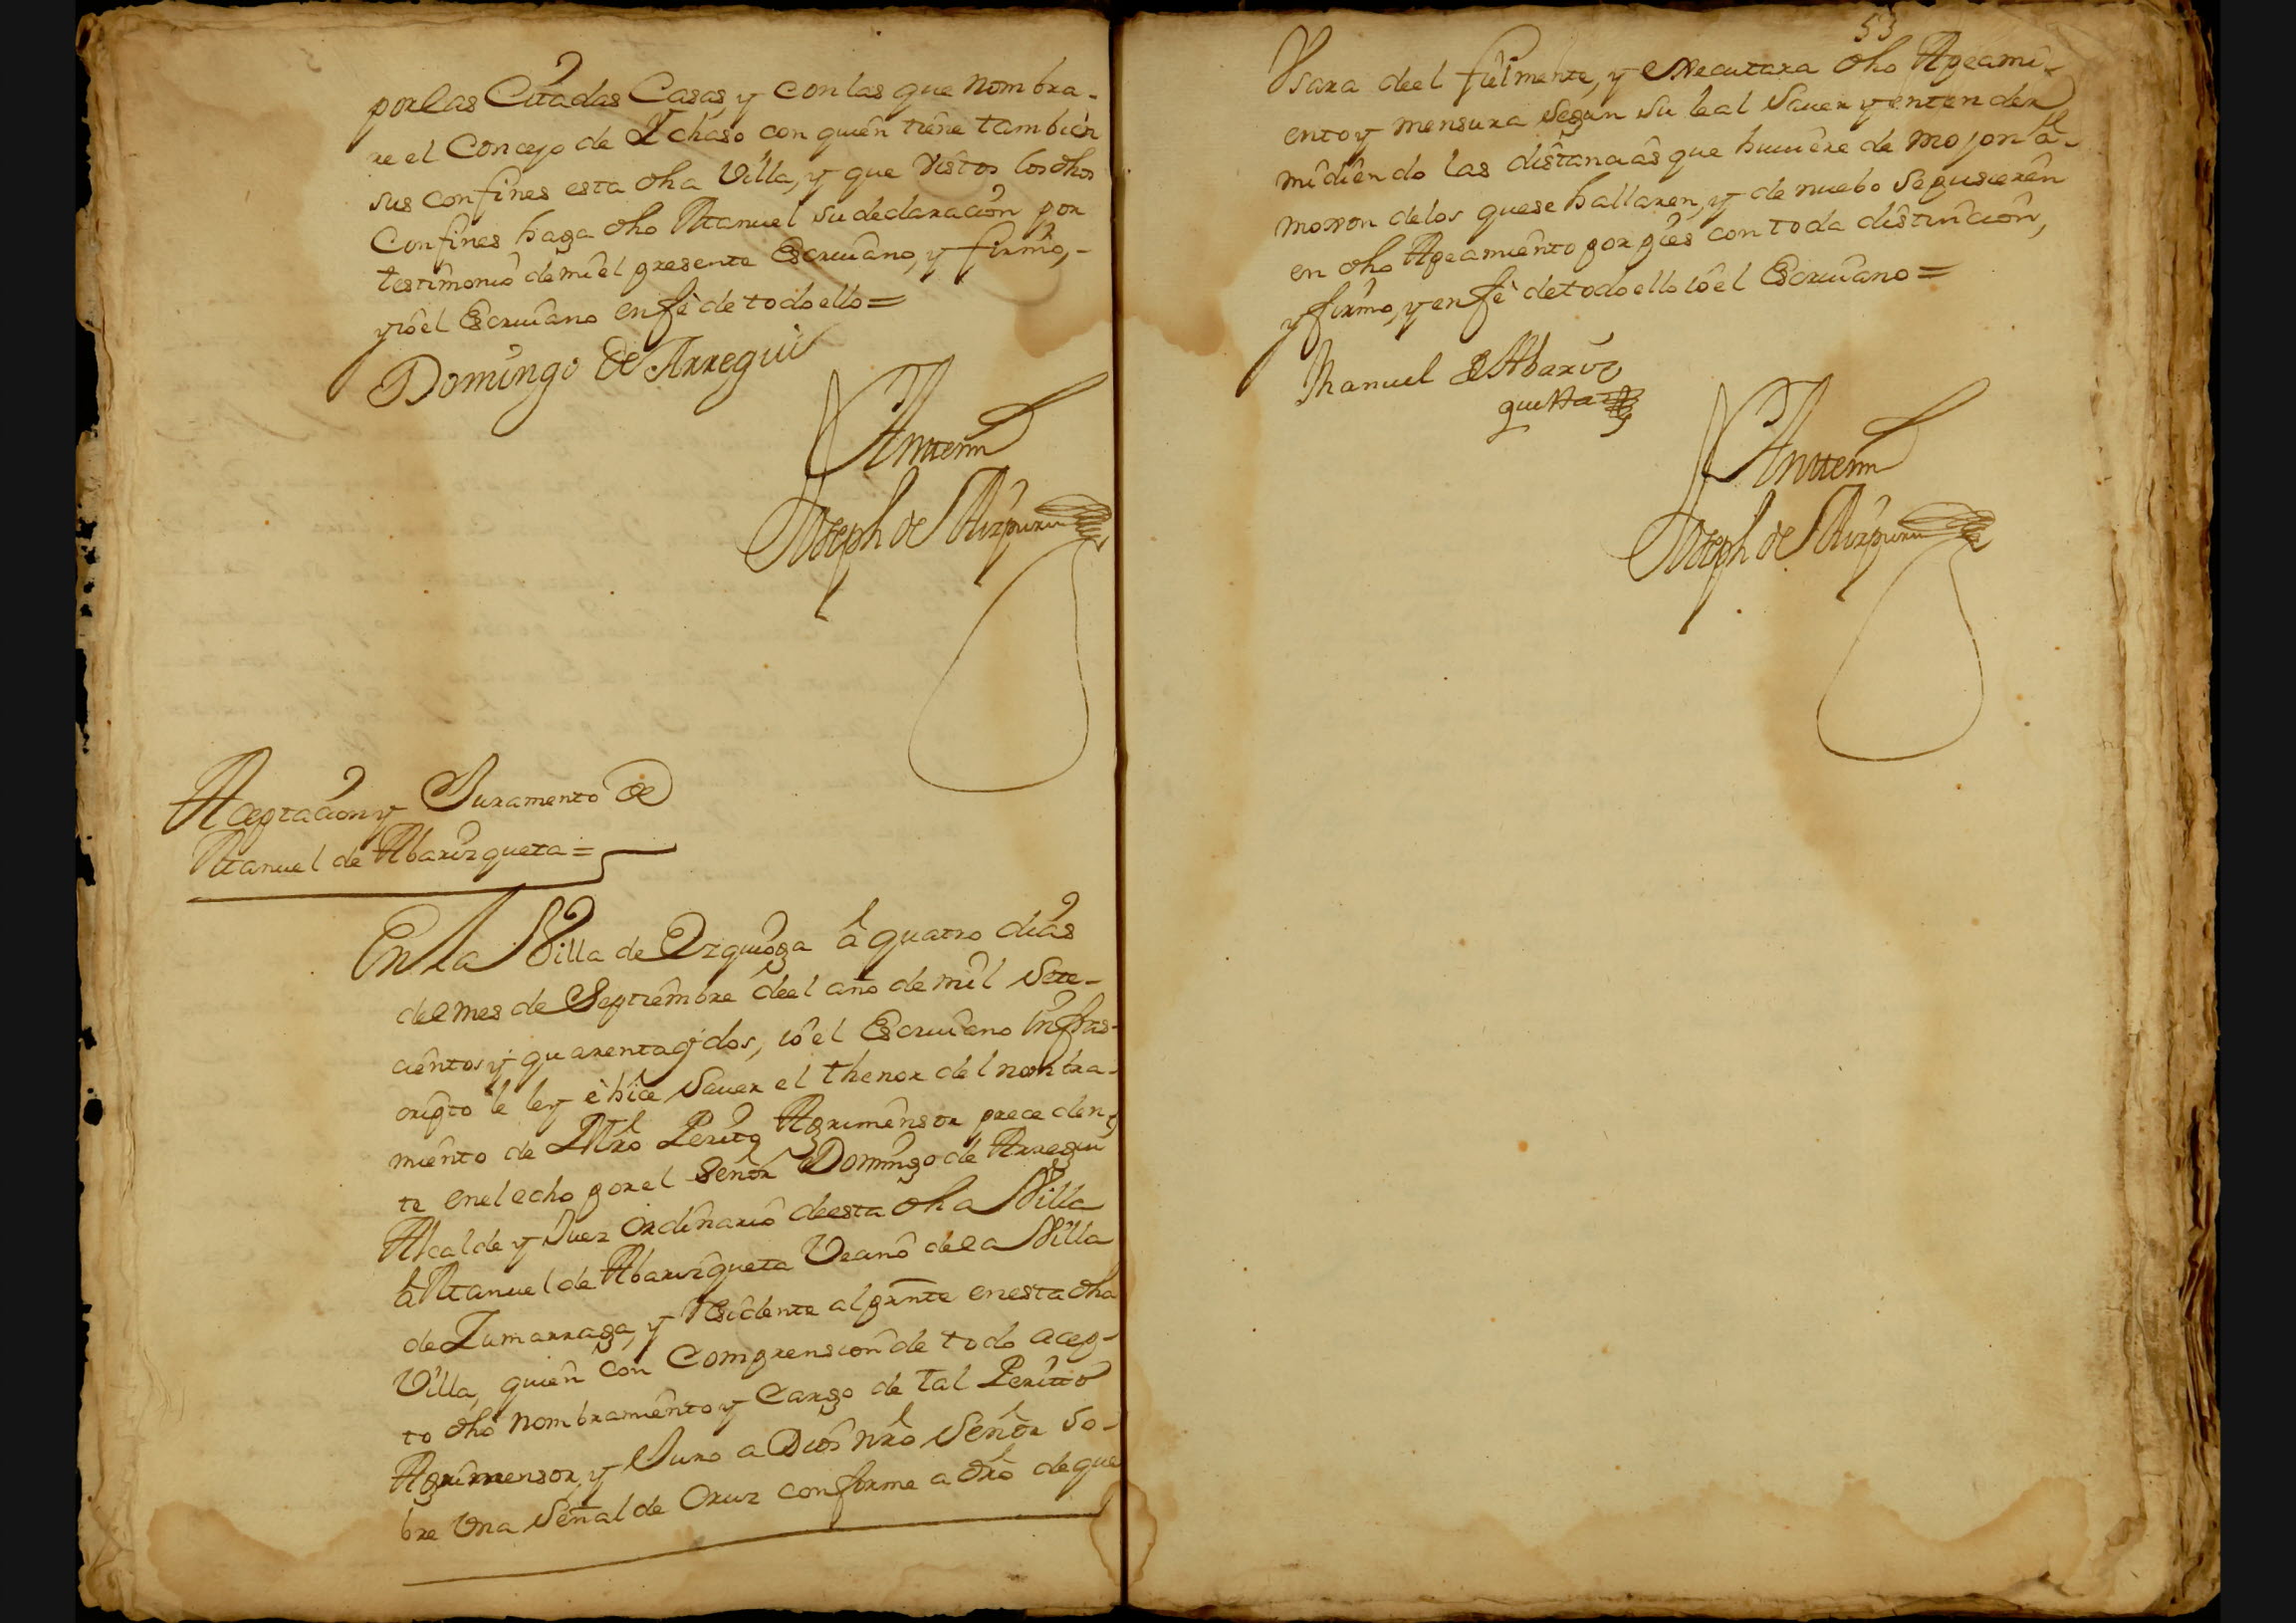 por las Citadas Casas y con las que nombra-
re el Concejo de Ychaso con quien tiene tambien
sus confines esta dha Villa, y que Vistos los dhos
Confines haga dho Manuel su declaracion por
testimonio de mi el presente Escriuano, y firmo,-
y io el Escriuano en fè de todo ello=
Domingo de Arregui
Antemi
Joseph de Aizpuru
Aceptacion y Juramento de
Manuel de Abarizqueta=
En la Villa de Ezquioga â quatro dias
del mes de Septiembre deel año de mil Sete-
cientos y quarenta y dos, io el Escriuano Infras-
cripto le ley è hice Sauer el thenor del nombra-
miento de Mro Perito Agrimensor preceden-
te en el echo por el Señor Domingo de Arregui
Alcalde y Juez ordinario de esta dha Villa
â Manuel de Abarizqueta Vecino de la Villa
de Zumarraga, y Residente al prnte en esta dha
Villa, quien con Comprension de todo acep-
to dho nombramiento y Cargo de tal Perito
Agrimensor, y Juro a Dios nro Señor so-
bre Una Señal de Cruz conforme a dro de que
53
Vsara de el fielmente, y executara dho Apeami-
ento y mensura segun su leal Sauer y entender
midiendo las distancias que huuiere de mojon â-
moxon de los que se hallaren, y de nuebo se pusieren
en dho Apeamiento por pies con toda distincion,
y firmo, y en fè de todo ello io el Escriuano=
Manuel de Abariz
queta
Antemi
Joseph de Aizpuru